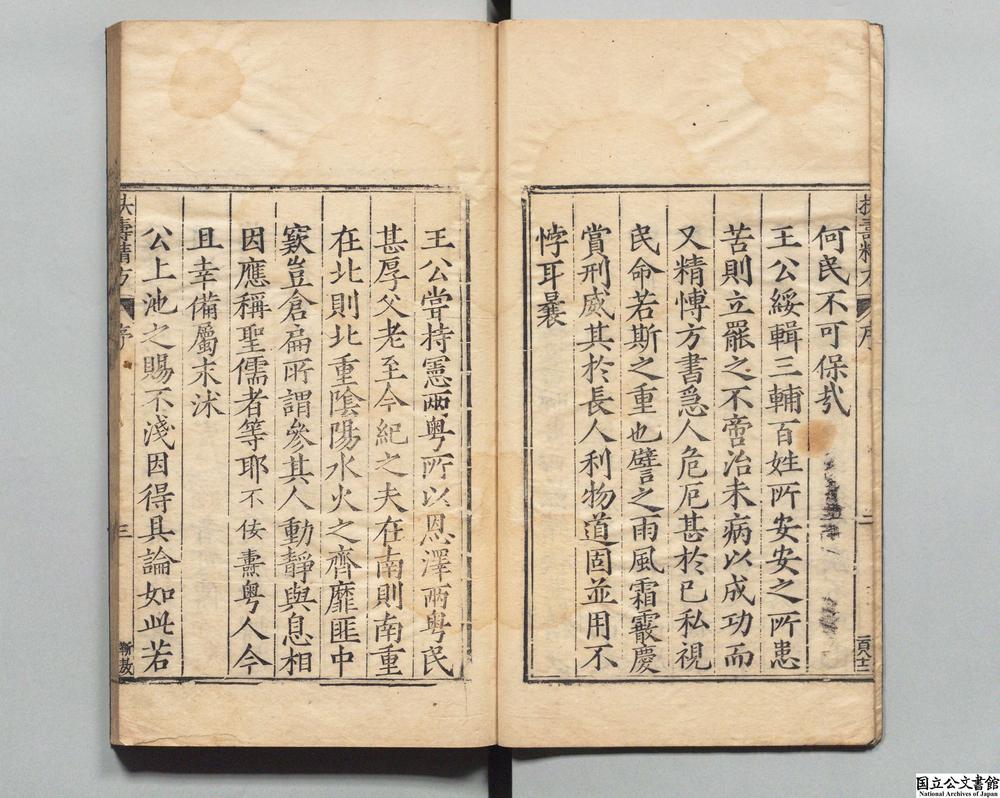 何民不可保哉
王公綏輯三輔百姓所安安之所患
苦則立罷之不啻治未病以成功而
又精博方書急人危厄甚於已私視
民命若斯之重也譬之雨風霜霰慶
賞刑威其於長人利物道固並用不
悖耳曩
王公嘗持憲兩粤所以恩澤兩粤民
甚厚父老至今紀之夫在南則南重
在北則北重陰陽水火之齊靡匪中
窾豈倉扁所謂參其人動靜與息相
因應稱聖儒者等耶不佞燾粤人今
且幸備屬末沐
公上池之賜不淺因得具論如此若
扶壽精方
序
三
扶壽精方
序
二
国立公文書館
National Archives of Japan